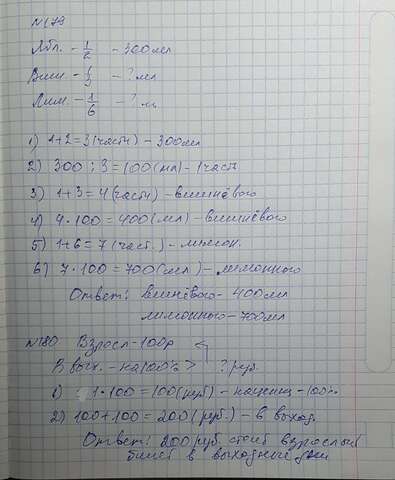 №179
Ябл. - 1/2 - 300 мл
Виш - 1/3 - ? мл
Лим. - 1/6 - ? м
1) 1+2=3 (част) - 300мл
2) 300 : 3=100 (мл) - 1 часть
3) 1+3=4 (част) - вишнёвого
4) 4·100=400 (мл) - вишнёвого
5) 1+6=7 (част.) - лимон.
6) 7·100=700 (мл) - лимонного
Ответ: вишнёвого - 400мл
лимонного - 700мл
№180 Взросл - 100р
В вых. - на 100% > ? руб.
1) 1·100=100 (руб) - наценка - 100%
2) 100+100=200 (руб.) - в выход.
Ответ: 200 руб стоит взрослый
билет в выходные дни